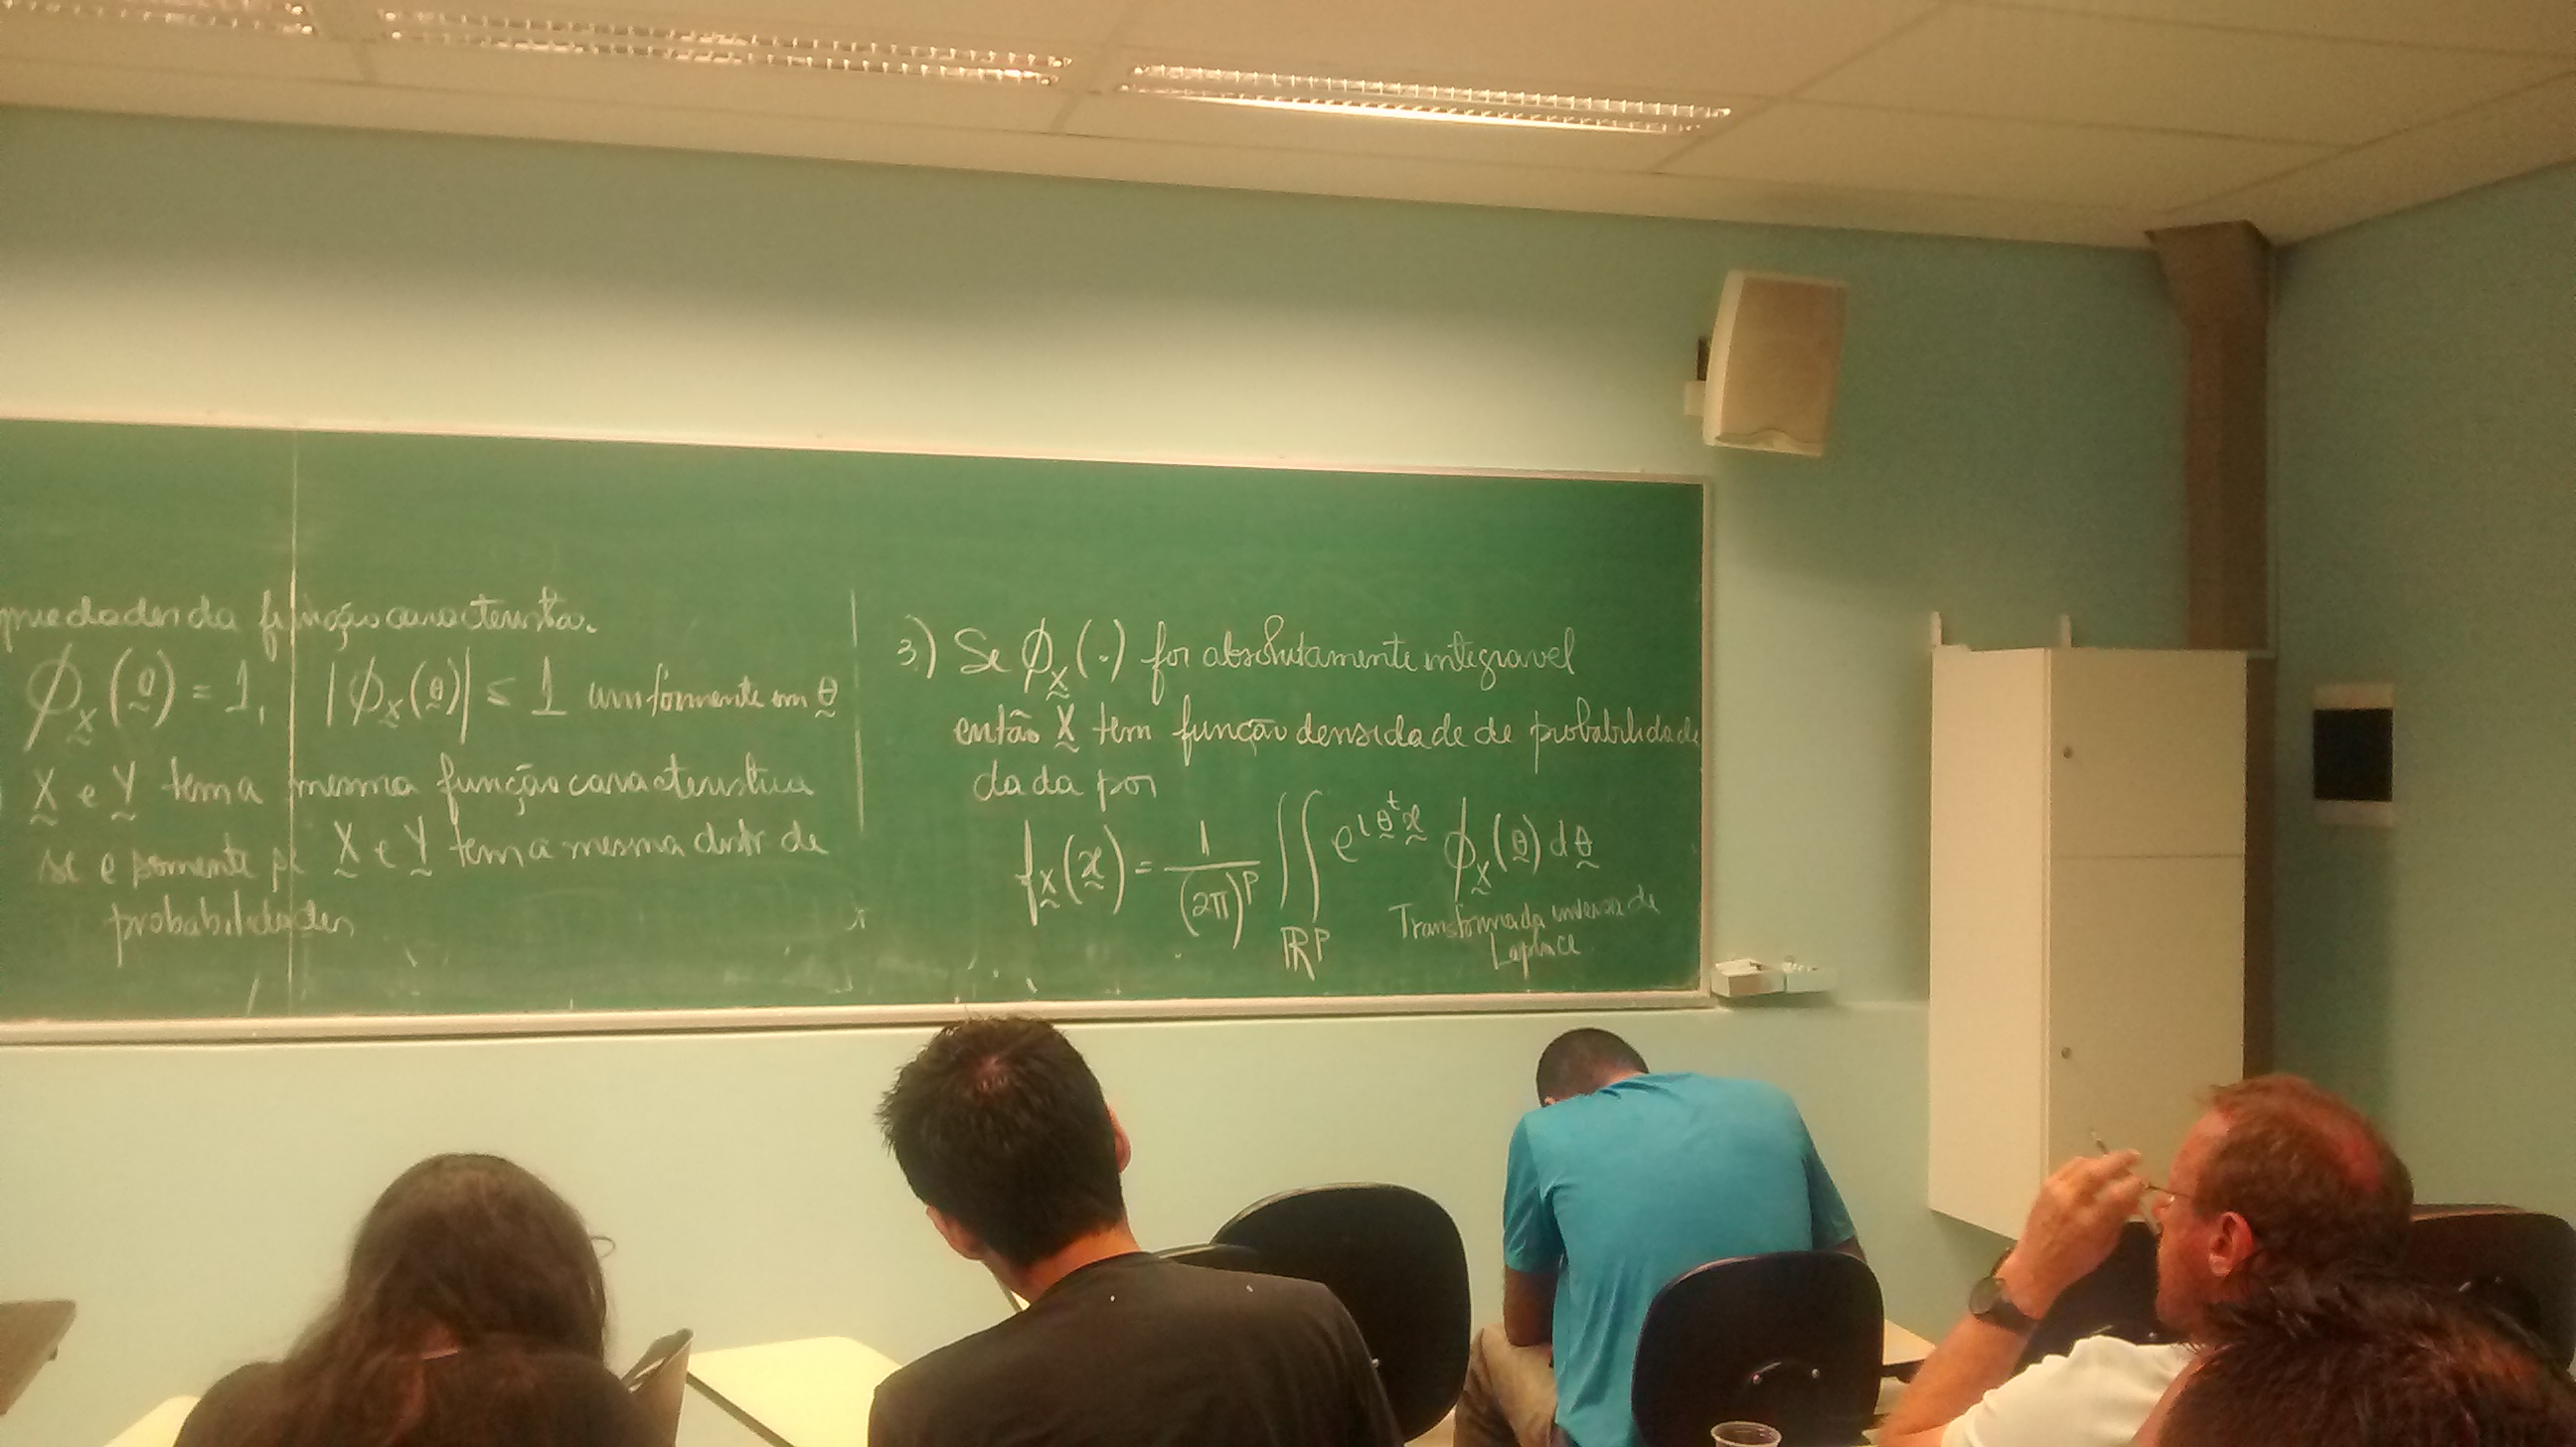 priedades da função característica.
ϕ_X(0) = 1, |ϕ_X(θ)| ≤ 1 uniformemente em θ
X e Y tem a mesma função característica
se e somente se X e Y tem a mesma distr de
probabilidades
3) Se ϕ_X(·) for absolutamente integravel
então X tem função densidade de probabilidade
dada por
f_X(x) = 1/(2π)^p ∫∫_{ℝ^p} e^{iθ^t x} ϕ_X(θ) dθ
Transformada inversa de
Laplace